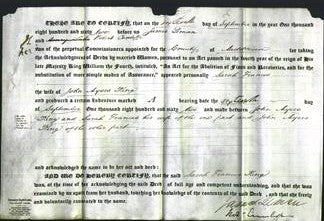 THESE ARE TO CERTIFY, that on the sixteenth day of September in the year One thousand
eight hundred and sixty two before James
two of the perpetual Commissioners appointed for the County of Middlesex for taking
the Acknowledgments of Deeds by married Women, pursuant to an Act passed in the fourth year of the reign of
his late Majesty King William the Fourth, intituled, "An Act for the Abolition of Fines and Recoveries, and for the
substitution of more simple modes of Assurance," appeared personally Sarah Frances
the wife of John Ayers King
and produced a certain Indenture marked A bearing date the
September one thousand eight hundred and sixty two made between John Ayers
King and Sarah Frances his wife of the one part and John Ayers
King of the other part
and acknowledged the same to be her act and deed:
AND WE DO HEREBY CERTIFY, that the said Sarah Frances King
was, at the time of her acknowledging the said Deed, of full age and competent understanding, and that she was
examined by us apart from her husband, touching her knowledge of the contents of the said Deed, and that she freely
and voluntarily consented to the same.